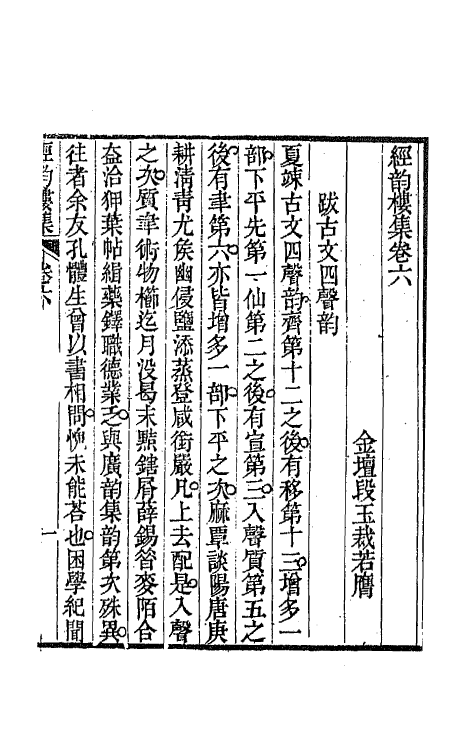 經韵樓集卷六
金壇段玉裁若膺
跋古文四聲韵
夏竦古文四聲韵。齊第十二之後。有移第十三。增多一
部。下平先第一仙第二之後。有宣第三。入聲質第五之
後。有聿第六。亦皆增多一部。下平之次。麻覃談陽唐庚
耕清青尤侯幽侵鹽添蒸登咸銜嚴凡。上去配是。入聲
之次。質聿術物櫛迄月没曷末黠鎋屑薛錫昝麥陌合
盍洽狎葉帖緝藥鐸職德業乏。與廣韵集韵第次殊異。
往者余友孔體生曾以書相問。愧未能荅也。困學紀聞
經韵樓集 卷六 一